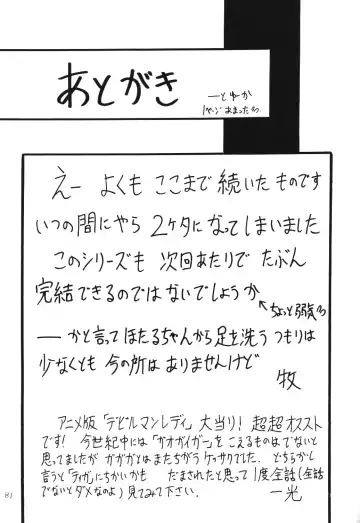 あとがき
ーとゆーか
1ページあまったろ
えー よくも ここまで 続いた ものです
いつの間にやら 2ケタに なって しまいました
このシリーズも 次回あたりで たぶん
完結できるのでは ないでしょうか
ちょっと弱気ろ
ーかと言って ほたるちゃんから 足を洗う つもりは
少なくとも 今の所は ありませんけど
牧
アニメ版「デビルマンレディー」大当り! 超超オススト
です! 今世紀中には「ガオガイガー」をこえるものはでないと
思ってましたが ガガガとはまたちがうケッサクでした。どちらかし
言うと「ティガ」にちかいかも だまされたと思って1度全話(全話
でないとダメなのよ)見てみて下さい。 一光
81